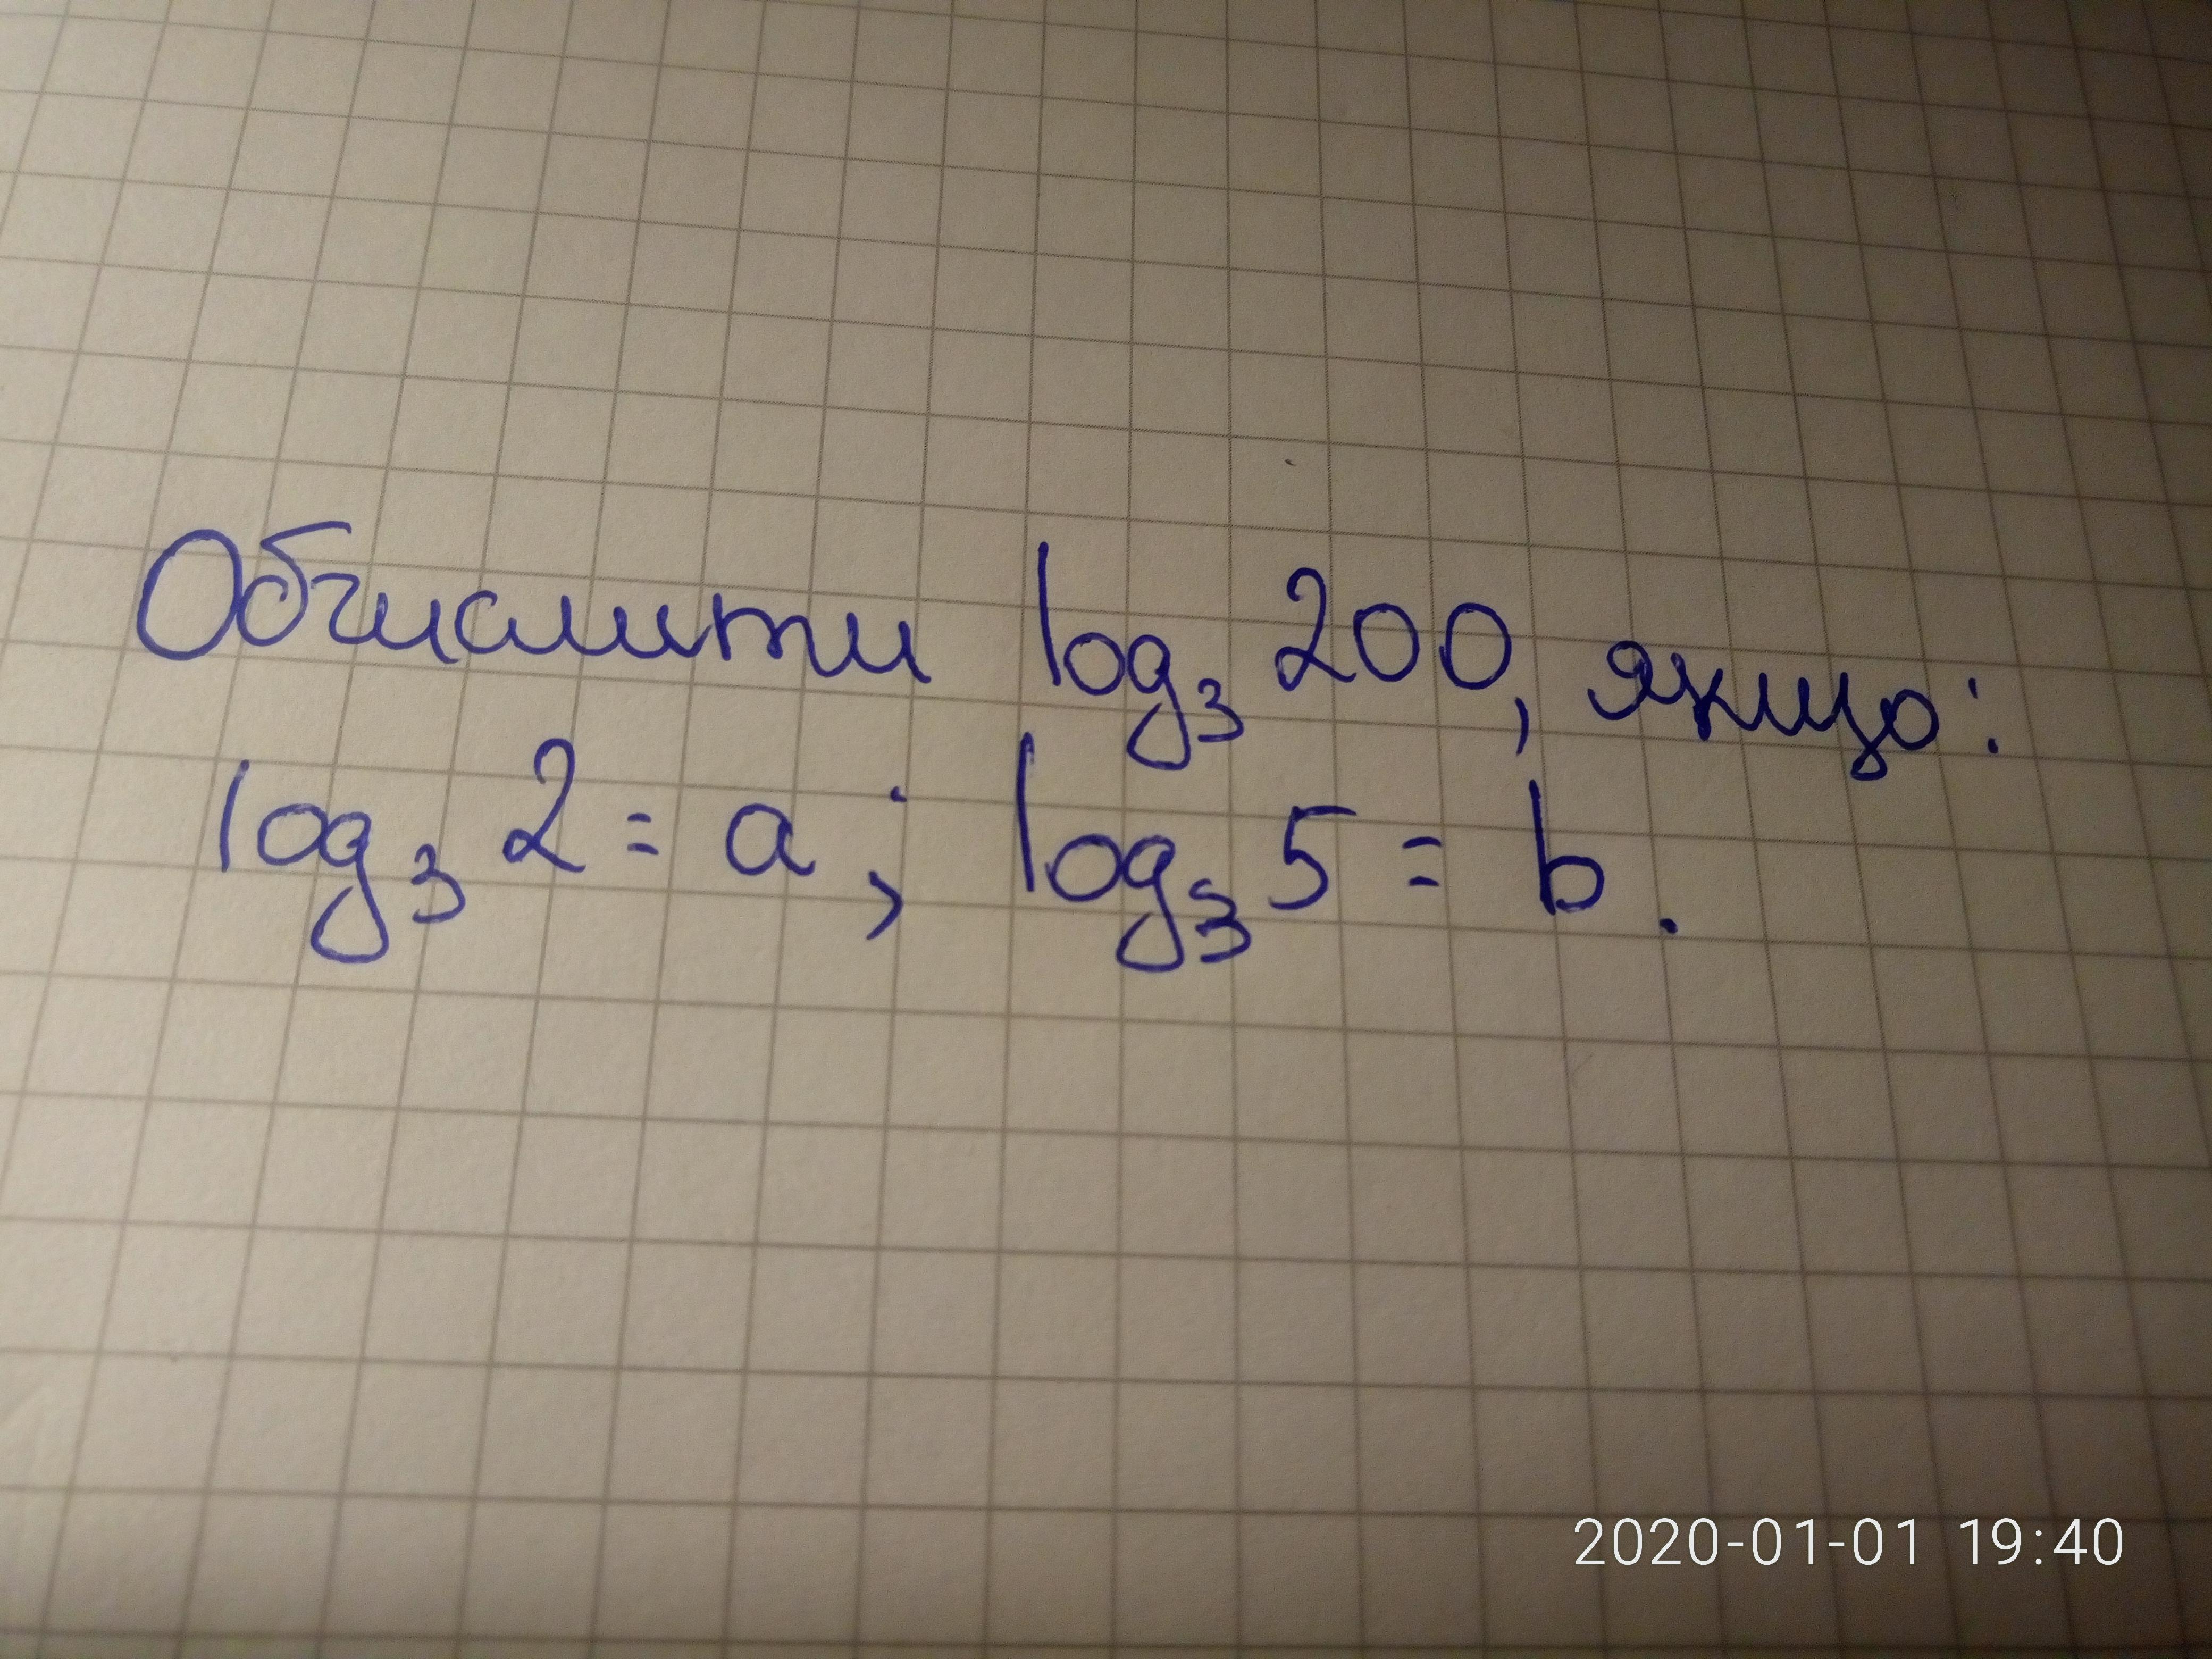 Обчислити log₃ 200, якщо:
log₃ 2 = a; log₃ 5 = b.
2020-01-01 19:40